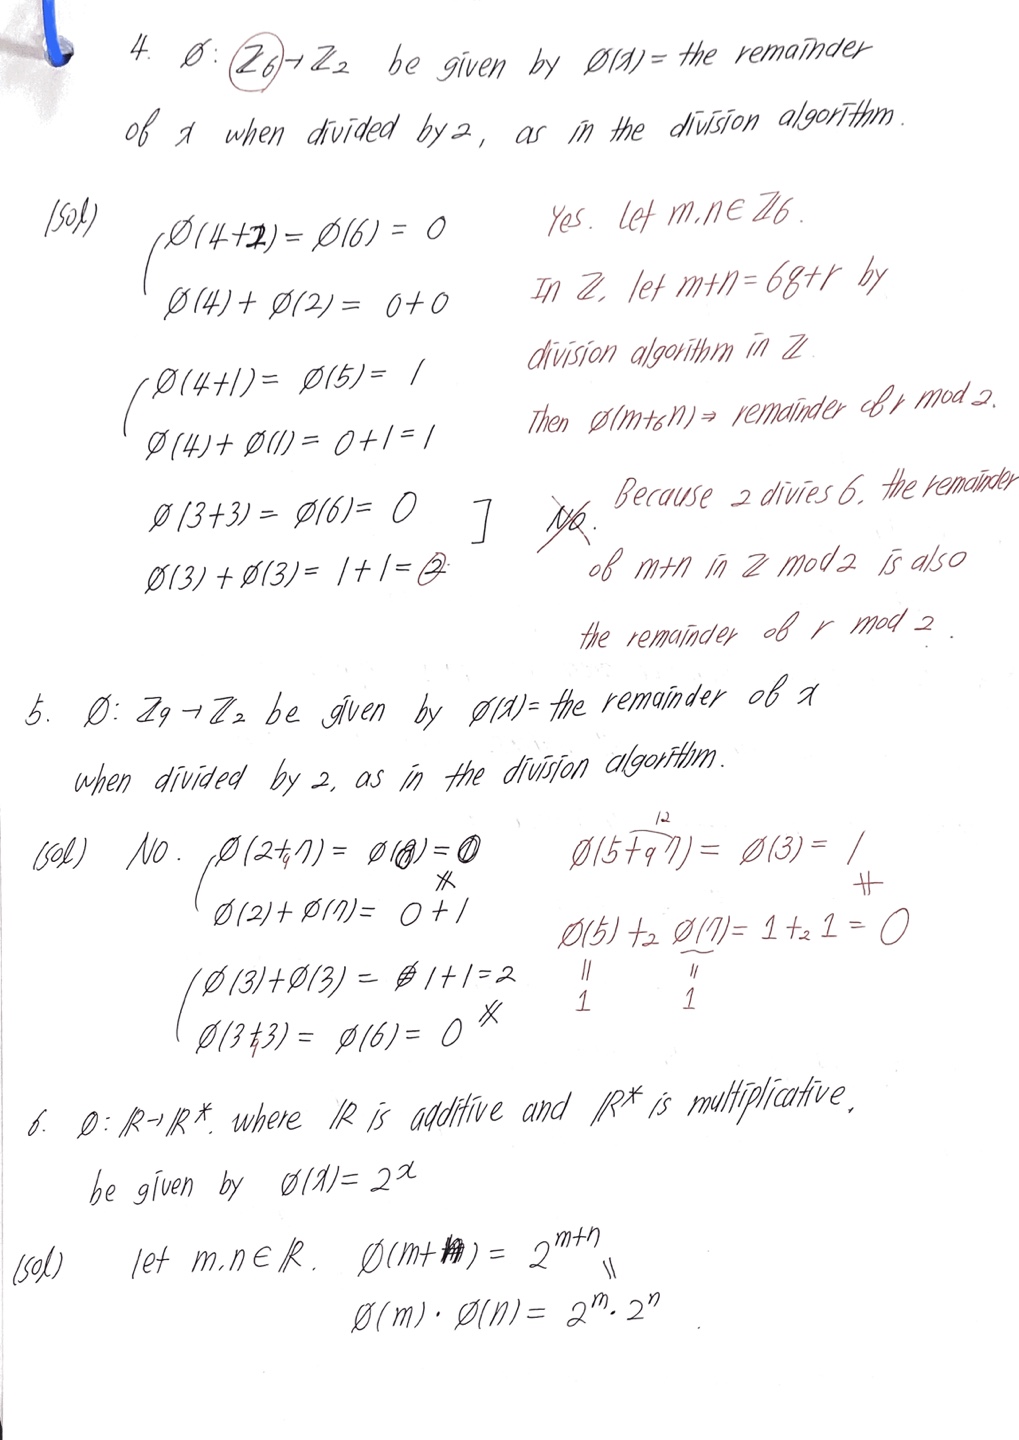 4. ∅: ℤ6→ℤ2 be given by ∅(x)= the remainder
of x when divided by 2, as in the division algorithm.
(sol) ∅(4+2)= ∅(6) = 0
∅(4)+ ∅(2)= 0+0
∅(4+1)= ∅(5)= 1
∅(4)+ ∅(1)= 0+1=1
∅(3+3)= ∅(6)= 0 ] No.
∅(3)+∅(3)= 1+1=2
Yes. Let m,n∈ ℤ6.
In ℤ, let m+n=6q+r by
division algorithm in ℤ
Then ∅(m+6n)⇒ remainder of r mod 2.
Because 2 divies 6, the remainder
of m+n in ℤ mod 2 is also
the remainder of r mod 2.
5. ∅: ℤ9→ℤ2 be given by ∅(x)= the remainder of x
when divided by 2, as in the division algorithm.
(sol) No. ∅(2+9 7)= ∅(0)=0
∅(2)+∅(7)= 0+1
∅(3)+∅(3)= 1+1=2
∅(3+9 3)= ∅(6)= 0
12
∅(5+9 7)= ∅(3)= 1
∅(5)+2 ∅(7)= 1+2 1 = 0
1 1
6. ∅: ℝ→ℝ*, where ℝ is additive and ℝ* is multiplicative,
be given by ∅(x)= 2^x
(sol) let m,n∈ℝ. ∅(m+n)= 2^m+n
∅(m)·∅(n)= 2^m·2^n.